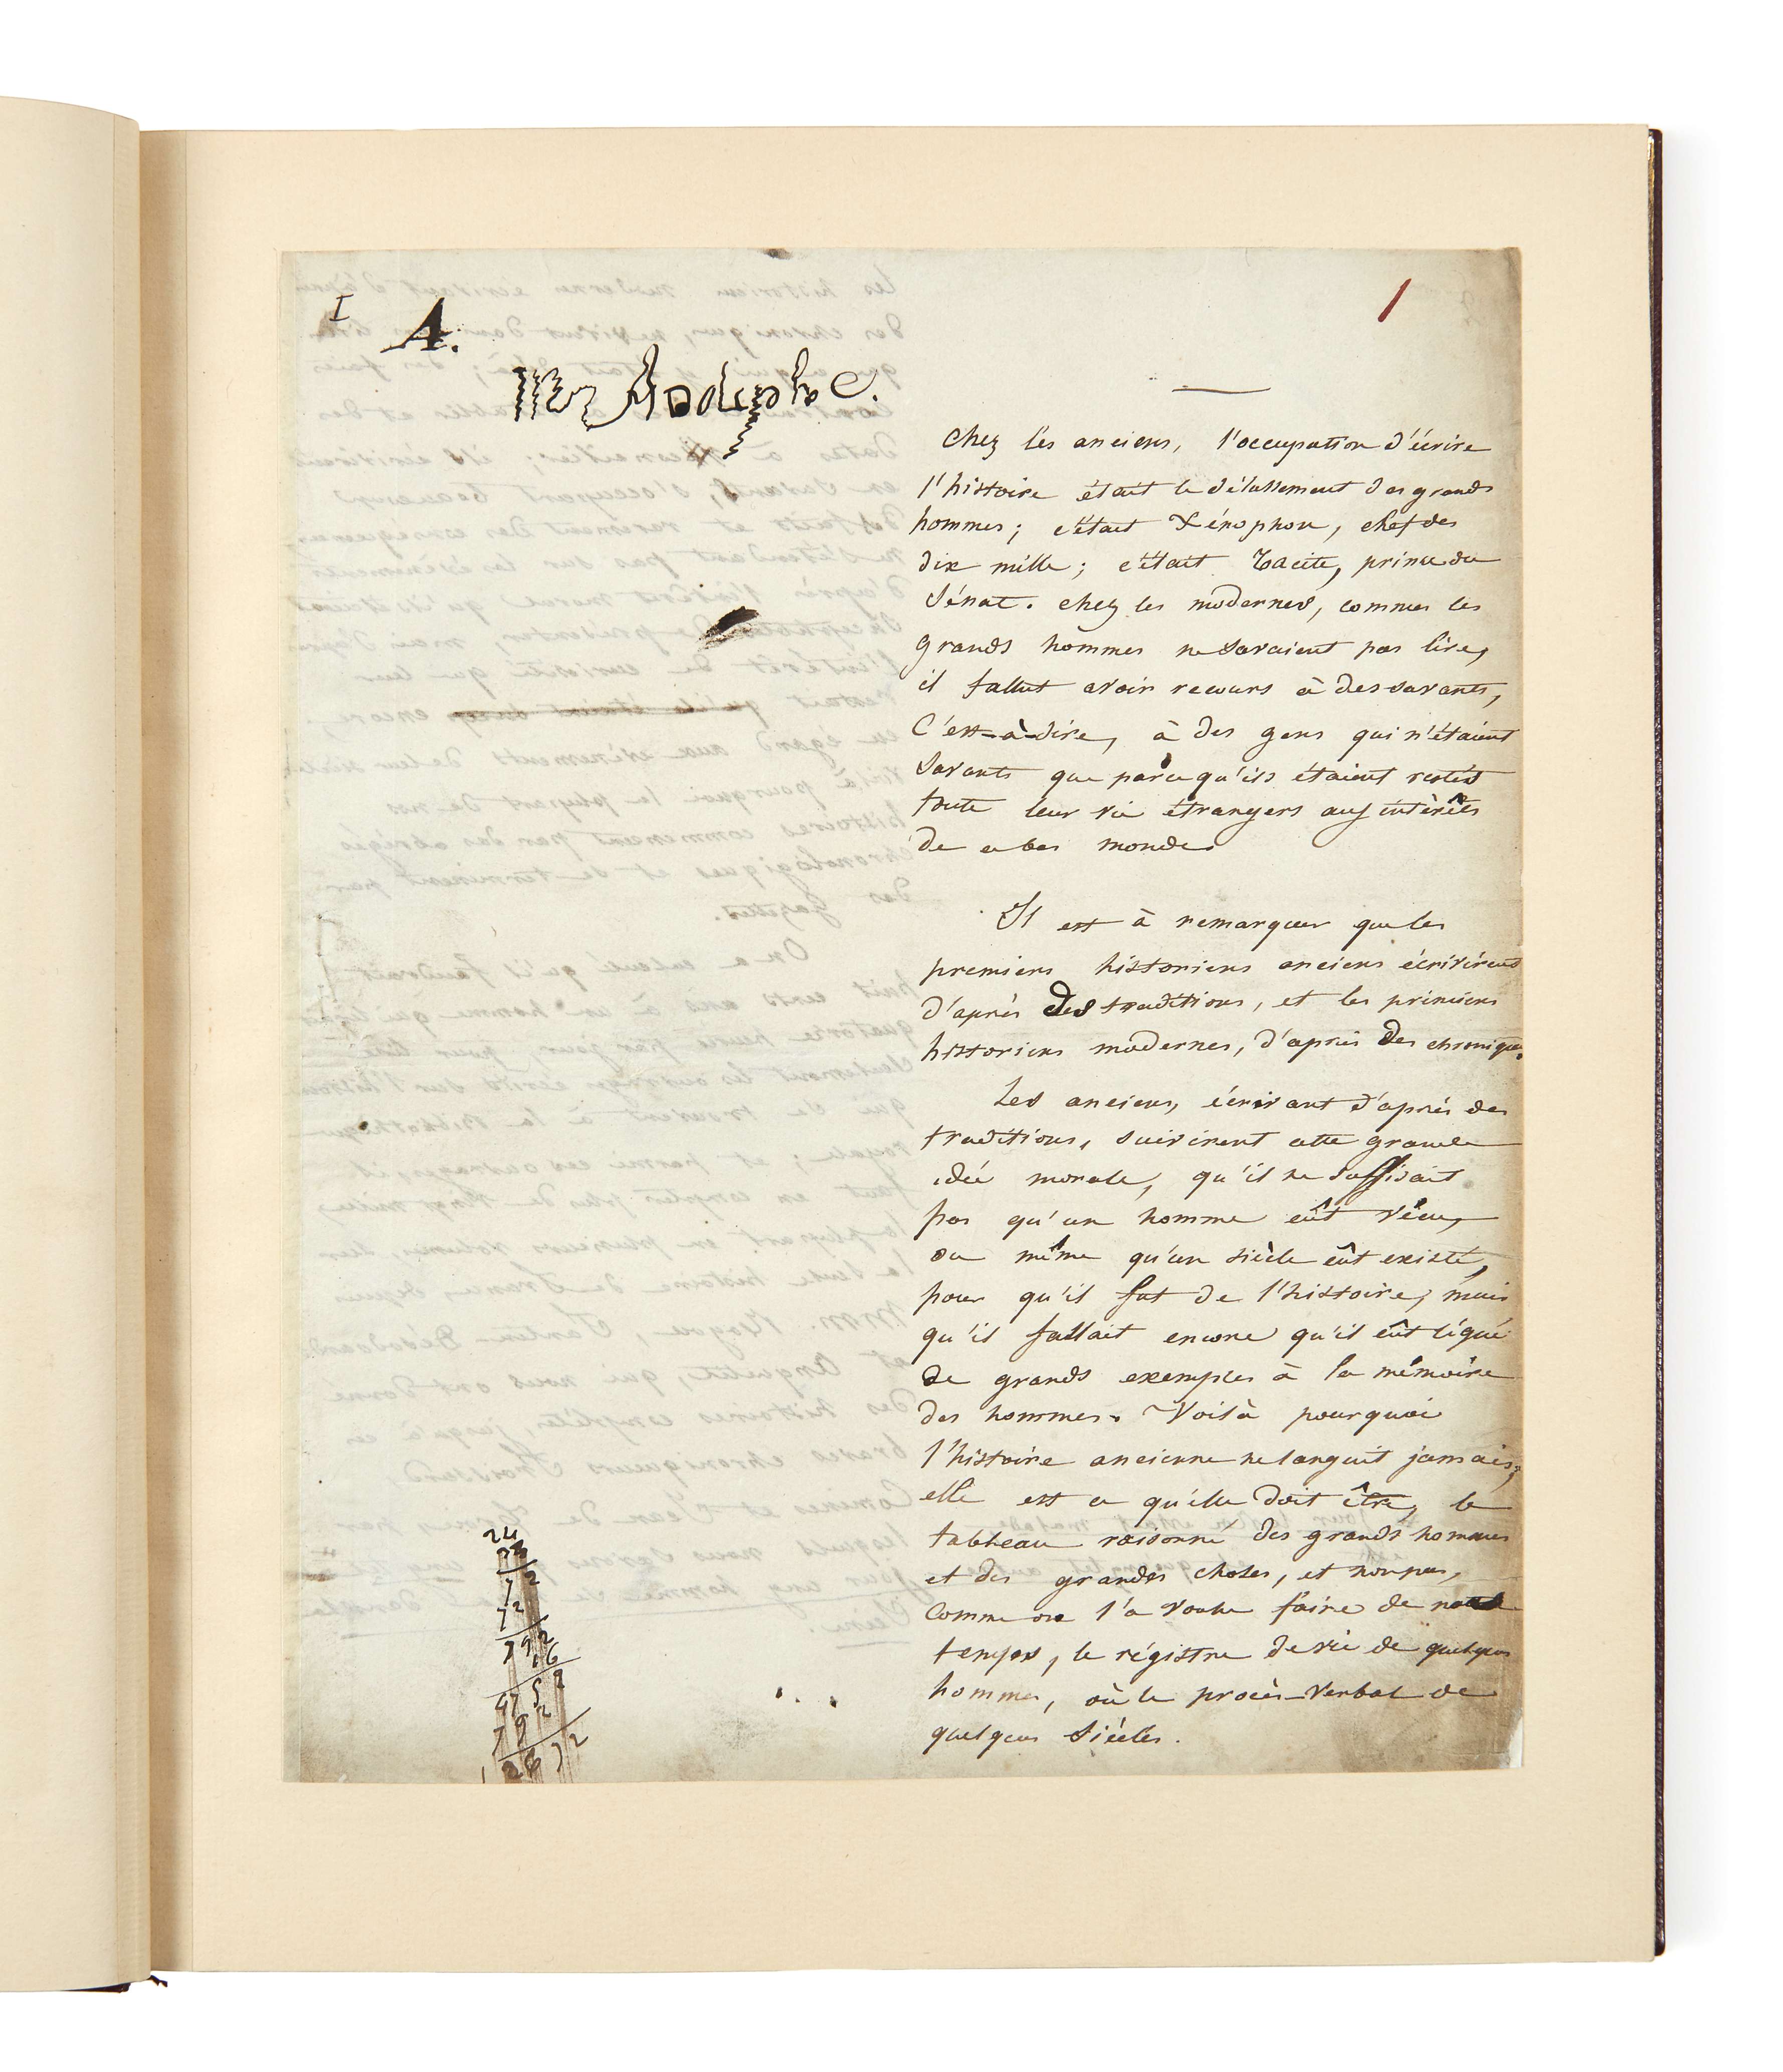 I
A.
1
Chez les anciens, l'occupation d'écrire
l'histoire était le délassement des grands
hommes; c'était Xénophon, chef des
dix mille; c'était Tacite, prince du
Sénat. chez les modernes, comme les
grands hommes ne savaient pas lire,
il fallut avoir recours à des savants,
C'est-à-dire, à des gens qui n'étaient
Savants que parce qu'ils étaient restés
toute leur vie étrangers aux intérêts
de ce bas monde.
Il est à remarquer que les
premiers historiens anciens écrivirent
d'après des traditions, et les premiers
historiens modernes, d'après des chroniques.
Les anciens, écrivant d'après des
traditions, suivirent cette grande
idée morale, qu'il ne suffisait
pas qu'un homme eût vécu,
ou même qu'un siècle eût existé,
pour qu'il fut de l'histoire; mais
qu'il fallait encore qu'il eût légué
de grands exemples à la mémoire
des hommes. Voilà pourquoi
l'histoire ancienne ne languit jamais;
elle est ce qu'elle doit être, le
tableau raisonné des grands hommes
et des grandes choses, et non pas,
comme on l'a voulu faire de notre
temps, le régistre de vie de quelques
hommes, où le procès-verbal de
quelques siècles.
24
72
792